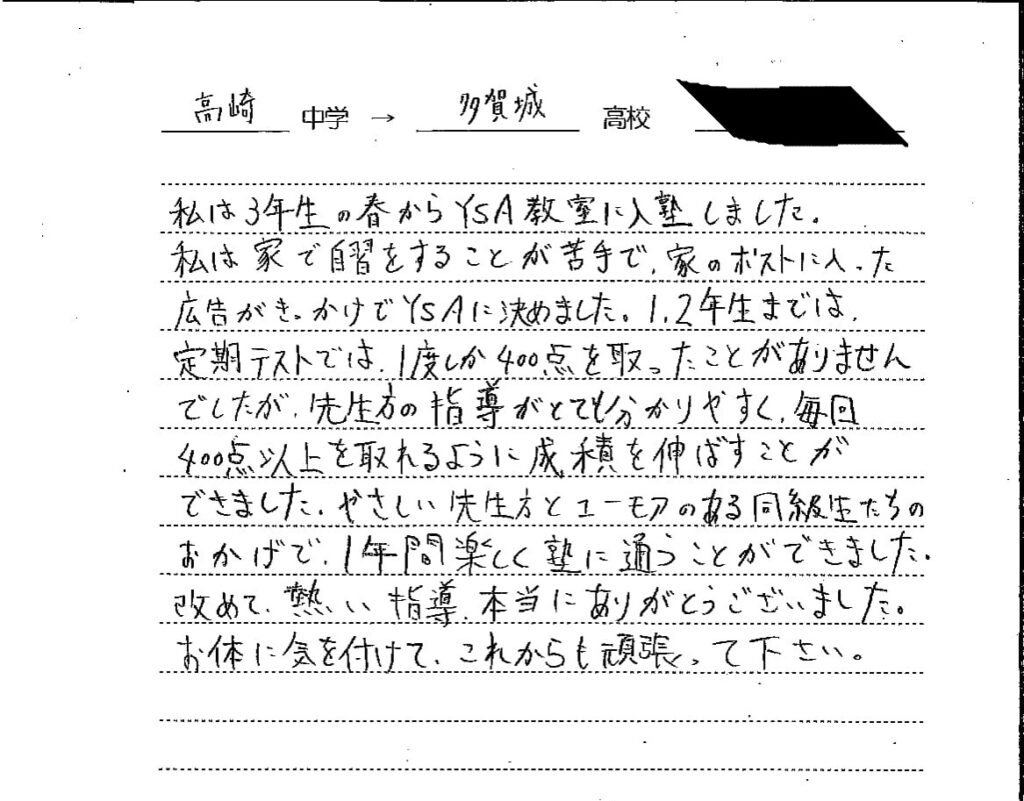 高崎 中学 → 多賀城 高校
私は3年生の春からYSA教室に入塾しました。
私は家で自習をすることが苦手で、家のポストに入った
広告がきっかけでYSAに決めました。1,2年生までは、
定期テストでは、1度しか400点を取ったことがありません
でしたが、先生方の指導がとても分かりやすく、毎回
400点以上を取れるように成績を伸ばすことが
できました。やさしい先生方とユーモアのある同級生たちの
おかげで、1年間楽しく塾に通うことができました。
改めて、熱い指導、本当にありがとうございました。
お体に気を付けて、これからも頑張って下さい。